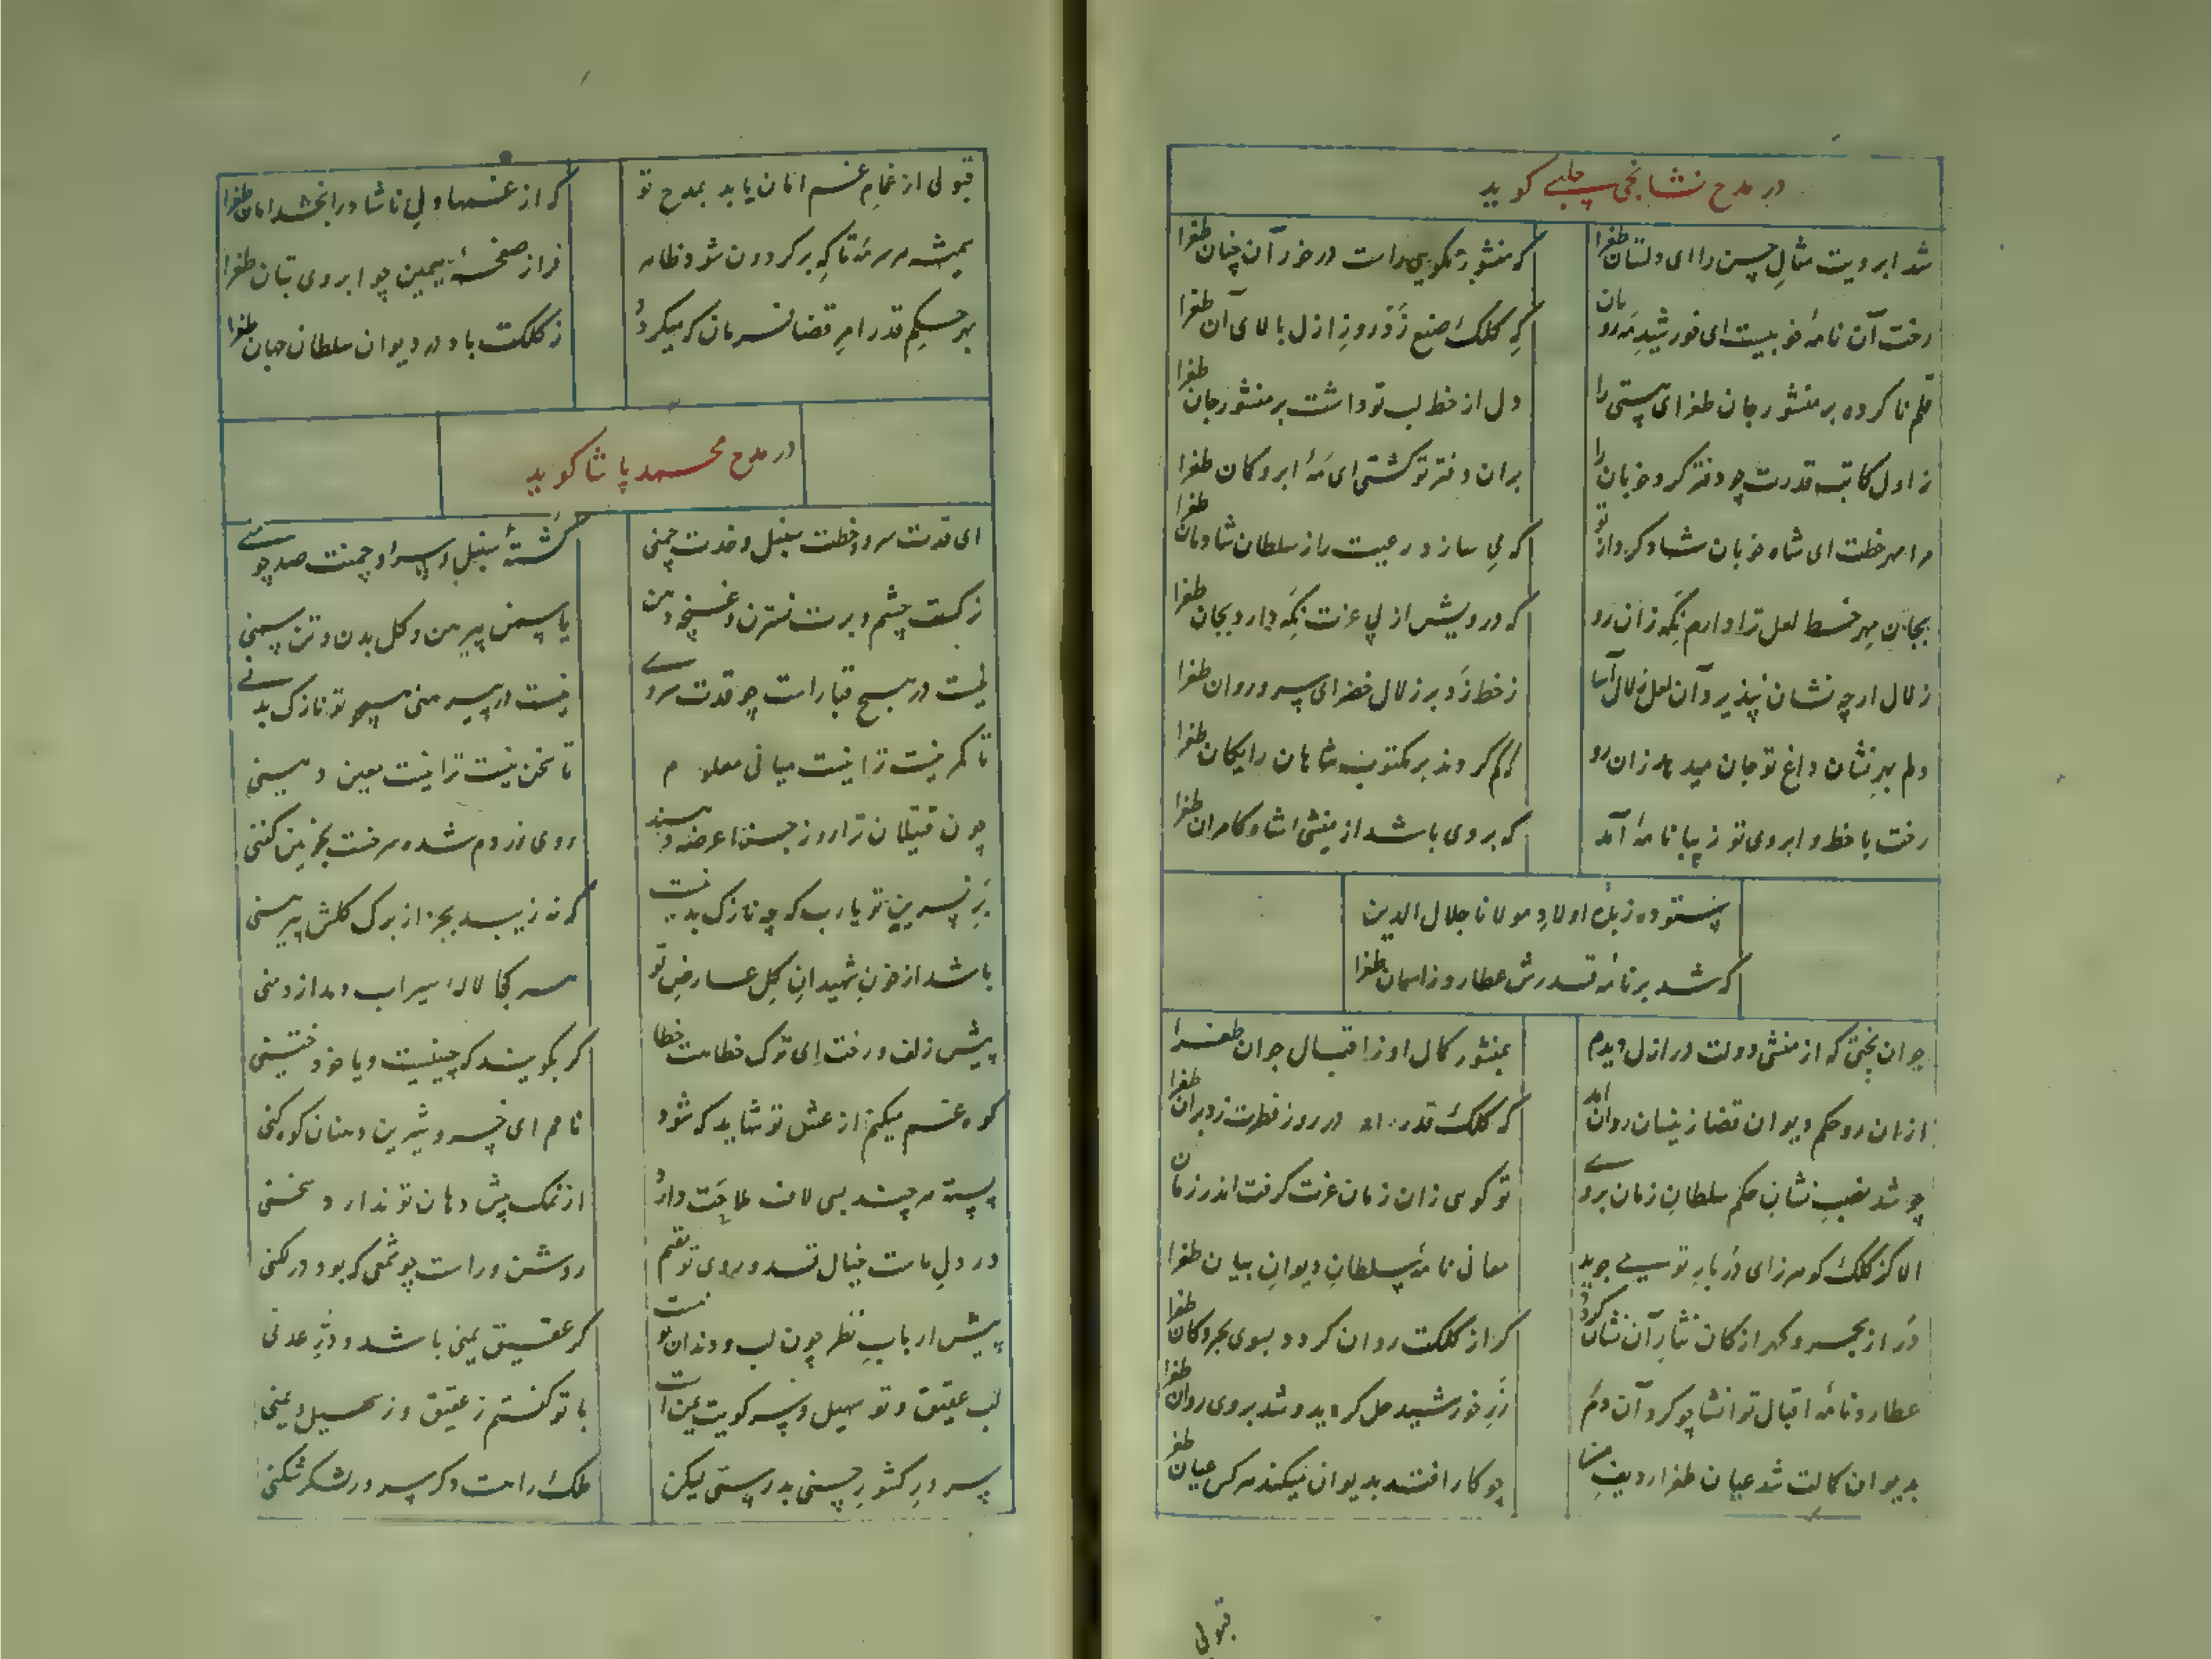 در مدح نشانجی چلبی کوید
شد ابرویت مثالِ حسن را ای دلستان طغرا
که منشور نکویی راست در خور آن چنان طغرا
رخت آن نامهٔ خوبیست ای خورشیدِ مَه رویان
که کلک صنع زد روز ازل بالای آن طغرا
قلم نا کرده بر منشور جان طغرای هستی را
دل از خط لب تو داشت بر منشور جان طغرا
ز اول کاتب قدرت چو دفتر کرد خوبان را
بران دفتر تو کشتی ای مَه ابرو کان طغرا
مرا مهر خطت ای شاه خوبان شاد کرد از تو
که می سازد رعیت را ز سلطان شادمان طغرا
بجان مهرِ خط لعل ترا دارم نکه زان رو
که درویش از پی عزت نکه دارد بجان طغرا
زلال ار چه نشان نپذیرد آن لعل زلال آسا
ز خط زد بر زلال خضر ای سرو روان طغرا
دلم بهرِ نشان داغ تو جان میدهد زان رو
که کم کردند بر مکتوب شاهان رایکان طغرا
رخت با خط و ابروی تو زیبا نامهٔ آمد
که بروی باشد از منشی انشا کامران طغرا
ستوده زبدهٔ اولادِ مولانا جلال الدین
که شد بر نامهٔ قدرش عطارد ز اسمان طغرا
جوان بختی که از منشی دولت در ازل دیدم
بمنشور کمال او ز اقبال جوان طغرا
ازان رو حکم دیوان قضا زینسان روان آمد
که کلک قدر او در روز فطرت زد بران طغرا
چو شد نصب نشانِ حکم سلطانِ زمان بروی
تو کوی زان زمان عزت کرفت اندر زمان
الا کز کلک کوهر زای دُربارِ تو می جوید
معانی نامهٔ سلطانِ دیوانِ بیان طغرا
دُر از بحر و کهر از کان نثارِ آن نشان کردد
کز از کلکت روان کردد بسوی بحر و کان طغرا
عطارد نامهٔ اقبال تو انشا چو کرد آن دم
زرِ خورشید حل کردید و شد بروی روان طغرا
بدیوان کمالت شد عیان طغرا ردیف
چو کار افتد بدیوان میکند هر کس عیان طغرا
قبولی
قبولی از غمامِ غم امان یابد بمدح تو
که از غمها دلِ ناشاد را بخشد امان طغرا
همیشه هر سرِ مَه تا که بر کردون شود ظاهر
فراز صفحهٔ سیمین چو ابروی بتان طغرا
بهر حکمِ قدر امرِ قضا فرمان که میکردد
ز کلکت باد در دیوان سلطان جهان طغرا
در مدح محمد پاشا کوید
ای قدت سرو و خطت سنبل و خدت چمنی
کشتهٔ سنبل و سرو چمنت صد چو منی
نرکست چشم و برت نسترن و غنچه دهن
یاسمین پیرهن و کل بدن و تن سمنی
نیست در هیچ قبا راست چو قدت سروی
نیست در پیرهنی همچو تو نازک بدنی
تا کمر نیست ترا نیست میانی معلوم
تا سخن نیست ترا نیست معین دهنی
چون قتیلان ترا روز جزا عرضه دهند
روی زردم شده سرخست بخونین کفنی
برِ نسرین تو یارب که چه نازک بدنست
که نه زیبد بجز از برک کلش پیرهنی
باشد از خونِ شهیدانِ کل عارضِ تو
هر کجا لالهٔ سیراب دمد از دمنی
پیش زلف و رخت ای ترک خطاست خطا
کر بکویند که چینیست و یا خود ختنی
کوه غم میکنم از عشق تو شاید که شود
نامم ای خسرو شیرین دهنان کوه کنی
پسته هر چند بسی لاف ملاحت دارد
از نمک پیش دهان تو ندارد سخنی
در دلِ ماست خیال قد و روی تو مقیم
روشن و راست چو شمعی که بود در لکنی
پیش اربابِ نظر چون لب و دندان تو نیست
کر عقیق یمنی باشد و دُرِّ عدنی
لب عقیق و تو سهیل و سرِ کویت یمن است
با تو کفتم ز عقیق و ز سهیل و یمنی
سرورِ کشورِ حسنی بدرستی لیکن
ملک راست دکر سرور لشکر شکنی